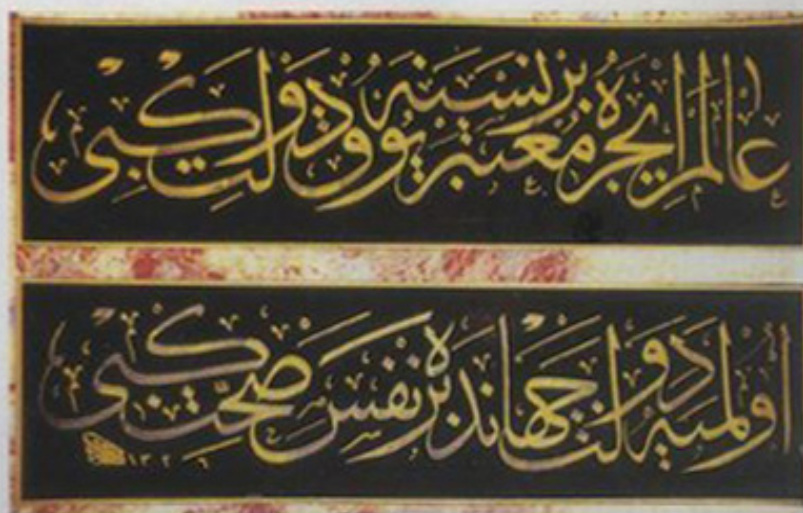 عالم ايچره معتبر بر نسنه يوق دولت كبى
اولميه دولت جهانده بر نفس صحت كبى